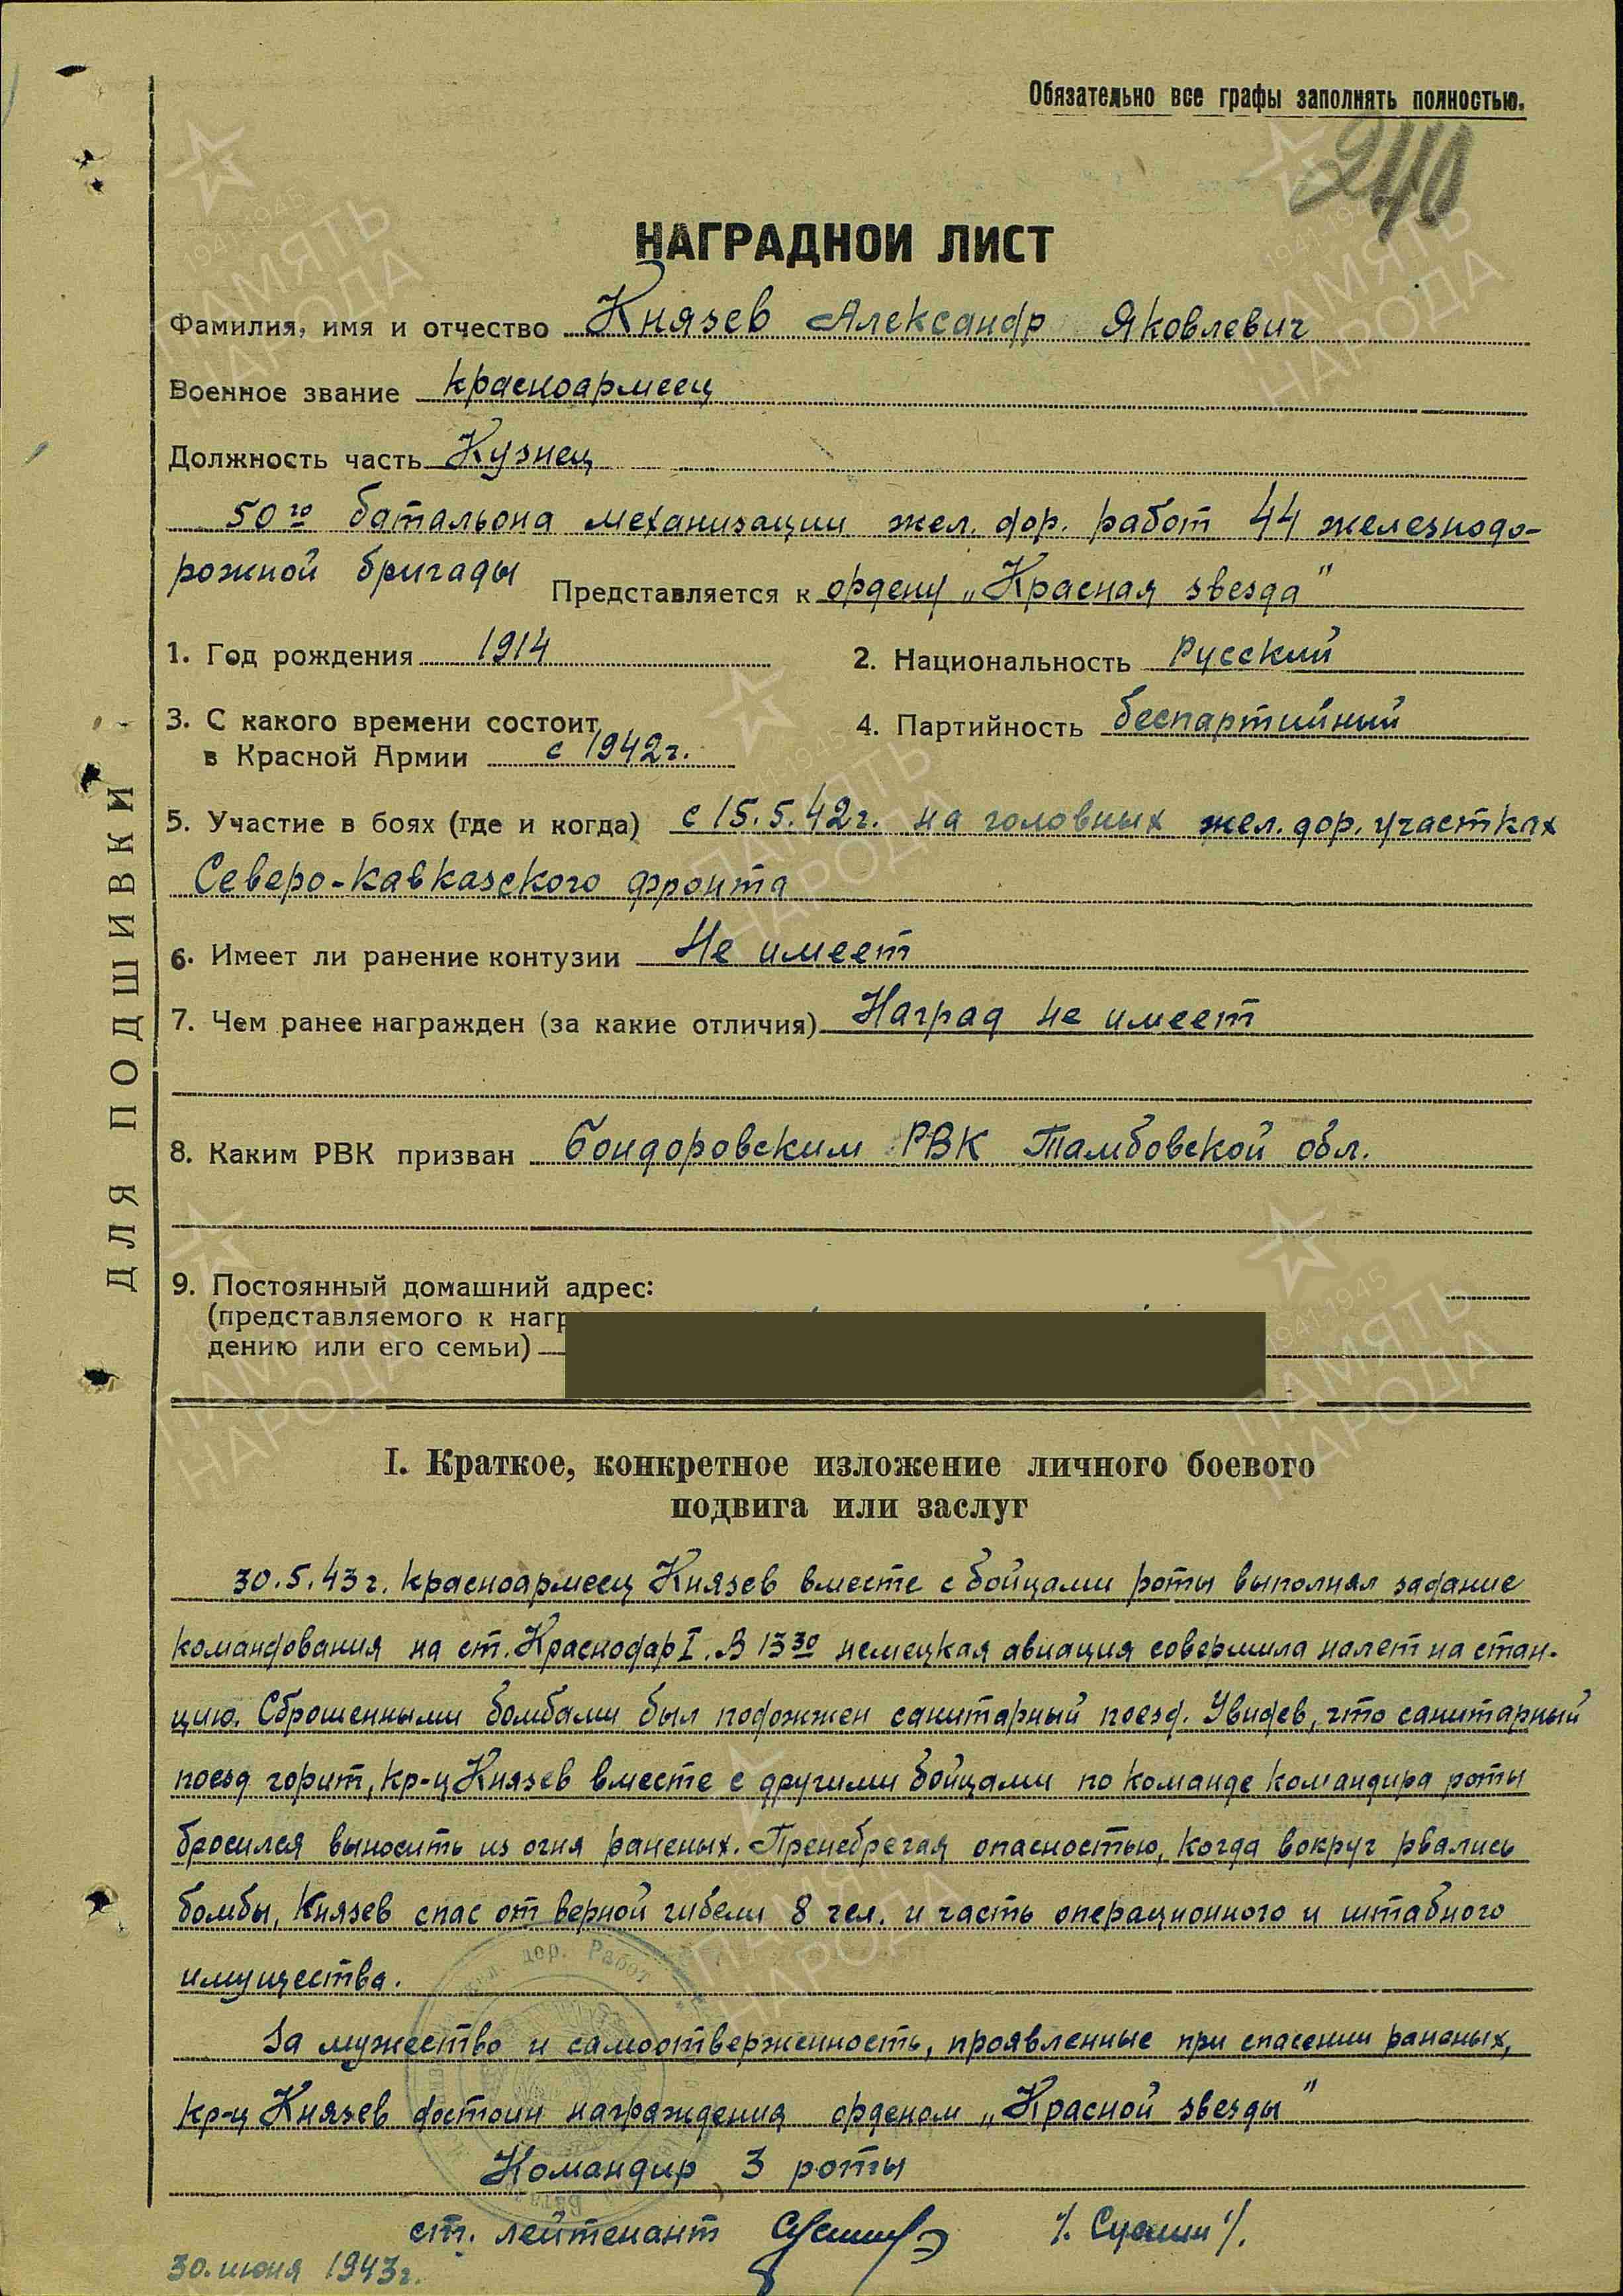 Обязательно все графы заполнять полностью.
240
НАГРАДНОЙ ЛИСТ
Фамилия, имя и отчество Князев Александр Яковлевич
Военное звание красноармеец
Должность часть Кузнец
50го батальона механизации жел. дор. работ 44 железнодо-
рожной бригады Представляется к ордену „Красная звезда"
1. Год рождения 1914 2. Национальность Русский
3. С какого времени состоит 4. Партийность беспартийный
в Красной Армии с 1942г.
5. Участие в боях (где и когда) с 15.5.42г. на головных жел. дор. участках
Северо-Кавказского фронта
6. Имеет ли ранение контузии Не имеет
7. Чем ранее награжден (за какие отличия) Наград не имеет
8. Каким РВК призван Бондоровским РВК Тамбовской обл.
9. Постоянный домашний адрес:
(представляемого к нагр
дению или его семьи)
ДЛЯ ПОДШИВКИ
I. Краткое, конкретное изложение личного боевого
подвига или заслуг
30.5.43г. красноармеец Князев вместе с бойцами роты выполнял задание
командования на ст. Краснодар I. В 13 30 немецкая авиация совершила налет на стан-
цию. Сброшенными бомбами был подожжен санитарный поезд. Увидев, что санитарный
поезд горит, кр-ц Князев вместе с другими бойцами по команде командира роты
бросился выносить из огня раненых. Пренебрегая опасностью, когда вокруг рвались
бомбы, Князев спас от верной гибели 8 чел. и часть операционного и штабного
имущества.
За мужество и самоотверженность, проявленные при спасении раненых,
кр-ц Князев достоин награждения орденом „Красной звезды"
Командир 3 роты
ст. лейтенант /Суслин/.
30. июня 1943г.
дор. Работ
1941-1945
ПАМЯТЬ
НАРОДА